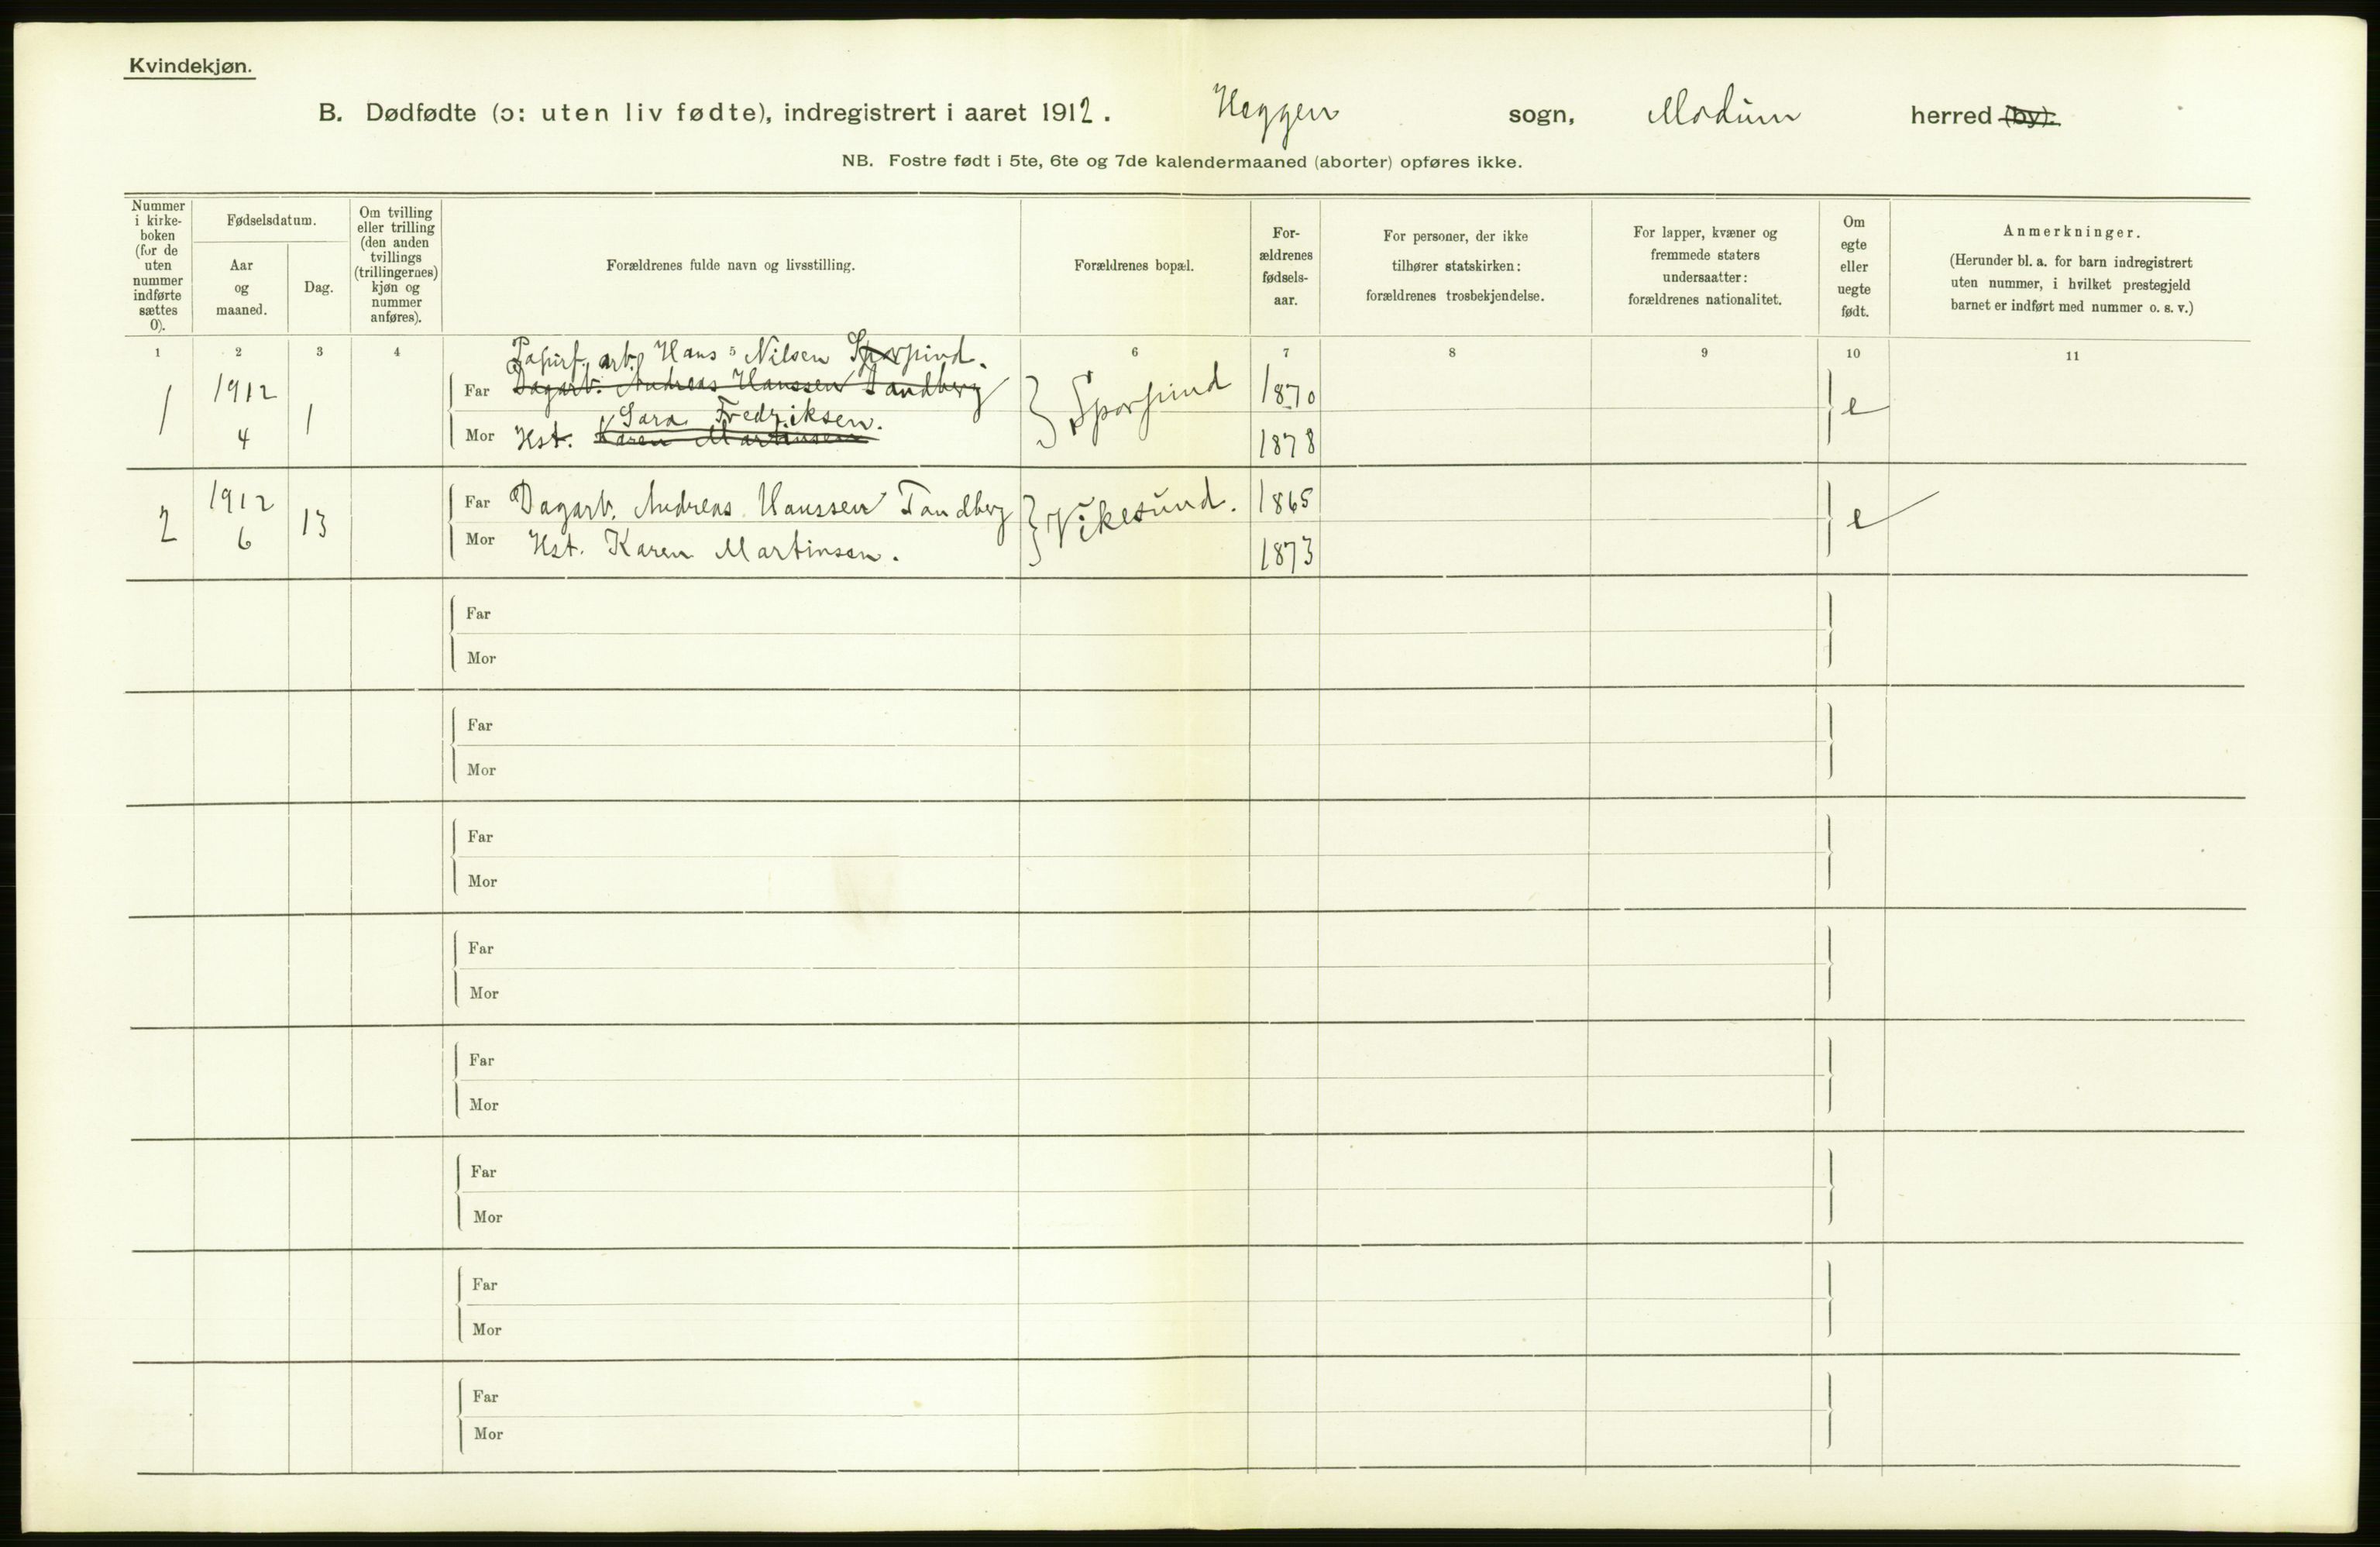 Kvindekjøn.
B. Dødfødte (ɔ: uten liv fødte), indregistrert i aaret 1912. Heggen sogn, Modum herred (by).
NB. Fostre født i 5te, 6te og 7de kalendermaaned (aborter) opføres ikke.
Nummer
i kirke-
boken
(for de
uten
nummer
indførte
sættes
0).
Fødselsdatum.
Aar
og
maaned.
Dag.
Om tvilling
eller trilling
(den anden
tvillings
(trillingernes)
kjøn og
nummer
anføres).
Forældrenes fulde navn og livsstilling.
Forældrenes bopæl.
For-
ældrenes
fødsels-
aar.
For personer, der ikke
tilhører statskirken:
forældrenes trosbekjendelse.
For lapper, kvæner og
fremmede staters
undersaatter:
forældrenes nationalitet.
Om
egte
eller
uegte
født.
Anmerkninger.
(Herunder bl. a. for barn indregistrert
uten nummer, i hvilket prestegjeld
barnet er indført med nummer o. s. v.)
1 2 3 4 5 6 7 8 9 10 11
Papirf. arb. Hans Nilsen Sporpind.
1 1912 4 1 Far Dagarb. Andreas Hanssen Tandberg Sporpind 1870 e
Sara Fredriksen.
Mor Hst. Karen Martinsen 1878
2 1912 6 13 Far Dagarb. Andreas Hanssen Tandberg Vikesund. 1865 e
Mor Hst. Karen Martinsen. 1873
Far
Mor
Far
Mor
Far
Mor
Far
Mor
Far
Mor
Far
Mor
Far
Mor
Far
Mor